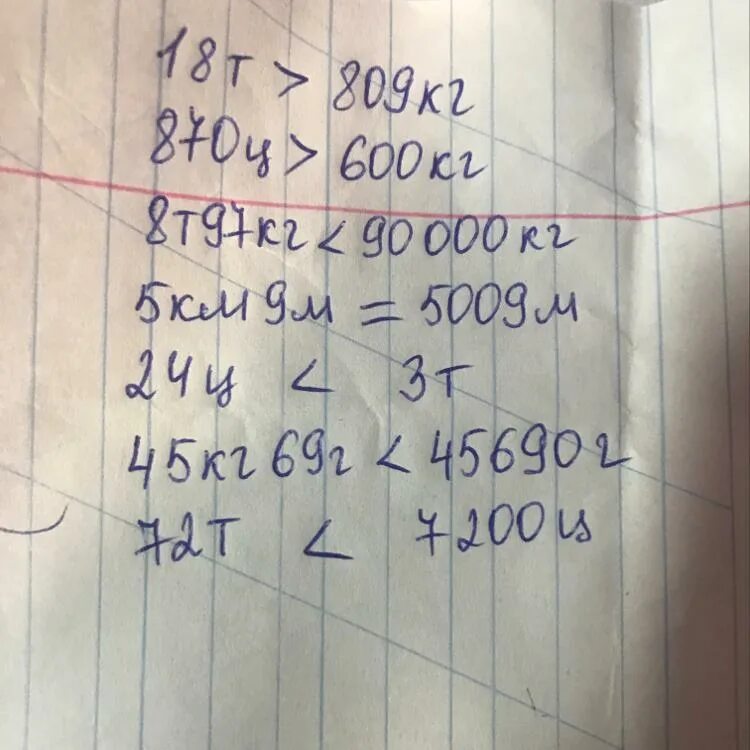 18т > 809кг
870ц > 600кг
8т97кг < 90000кг
5км9м = 5009м
24ц < 3т
45кг 69г < 45690г
72т < 7200ц